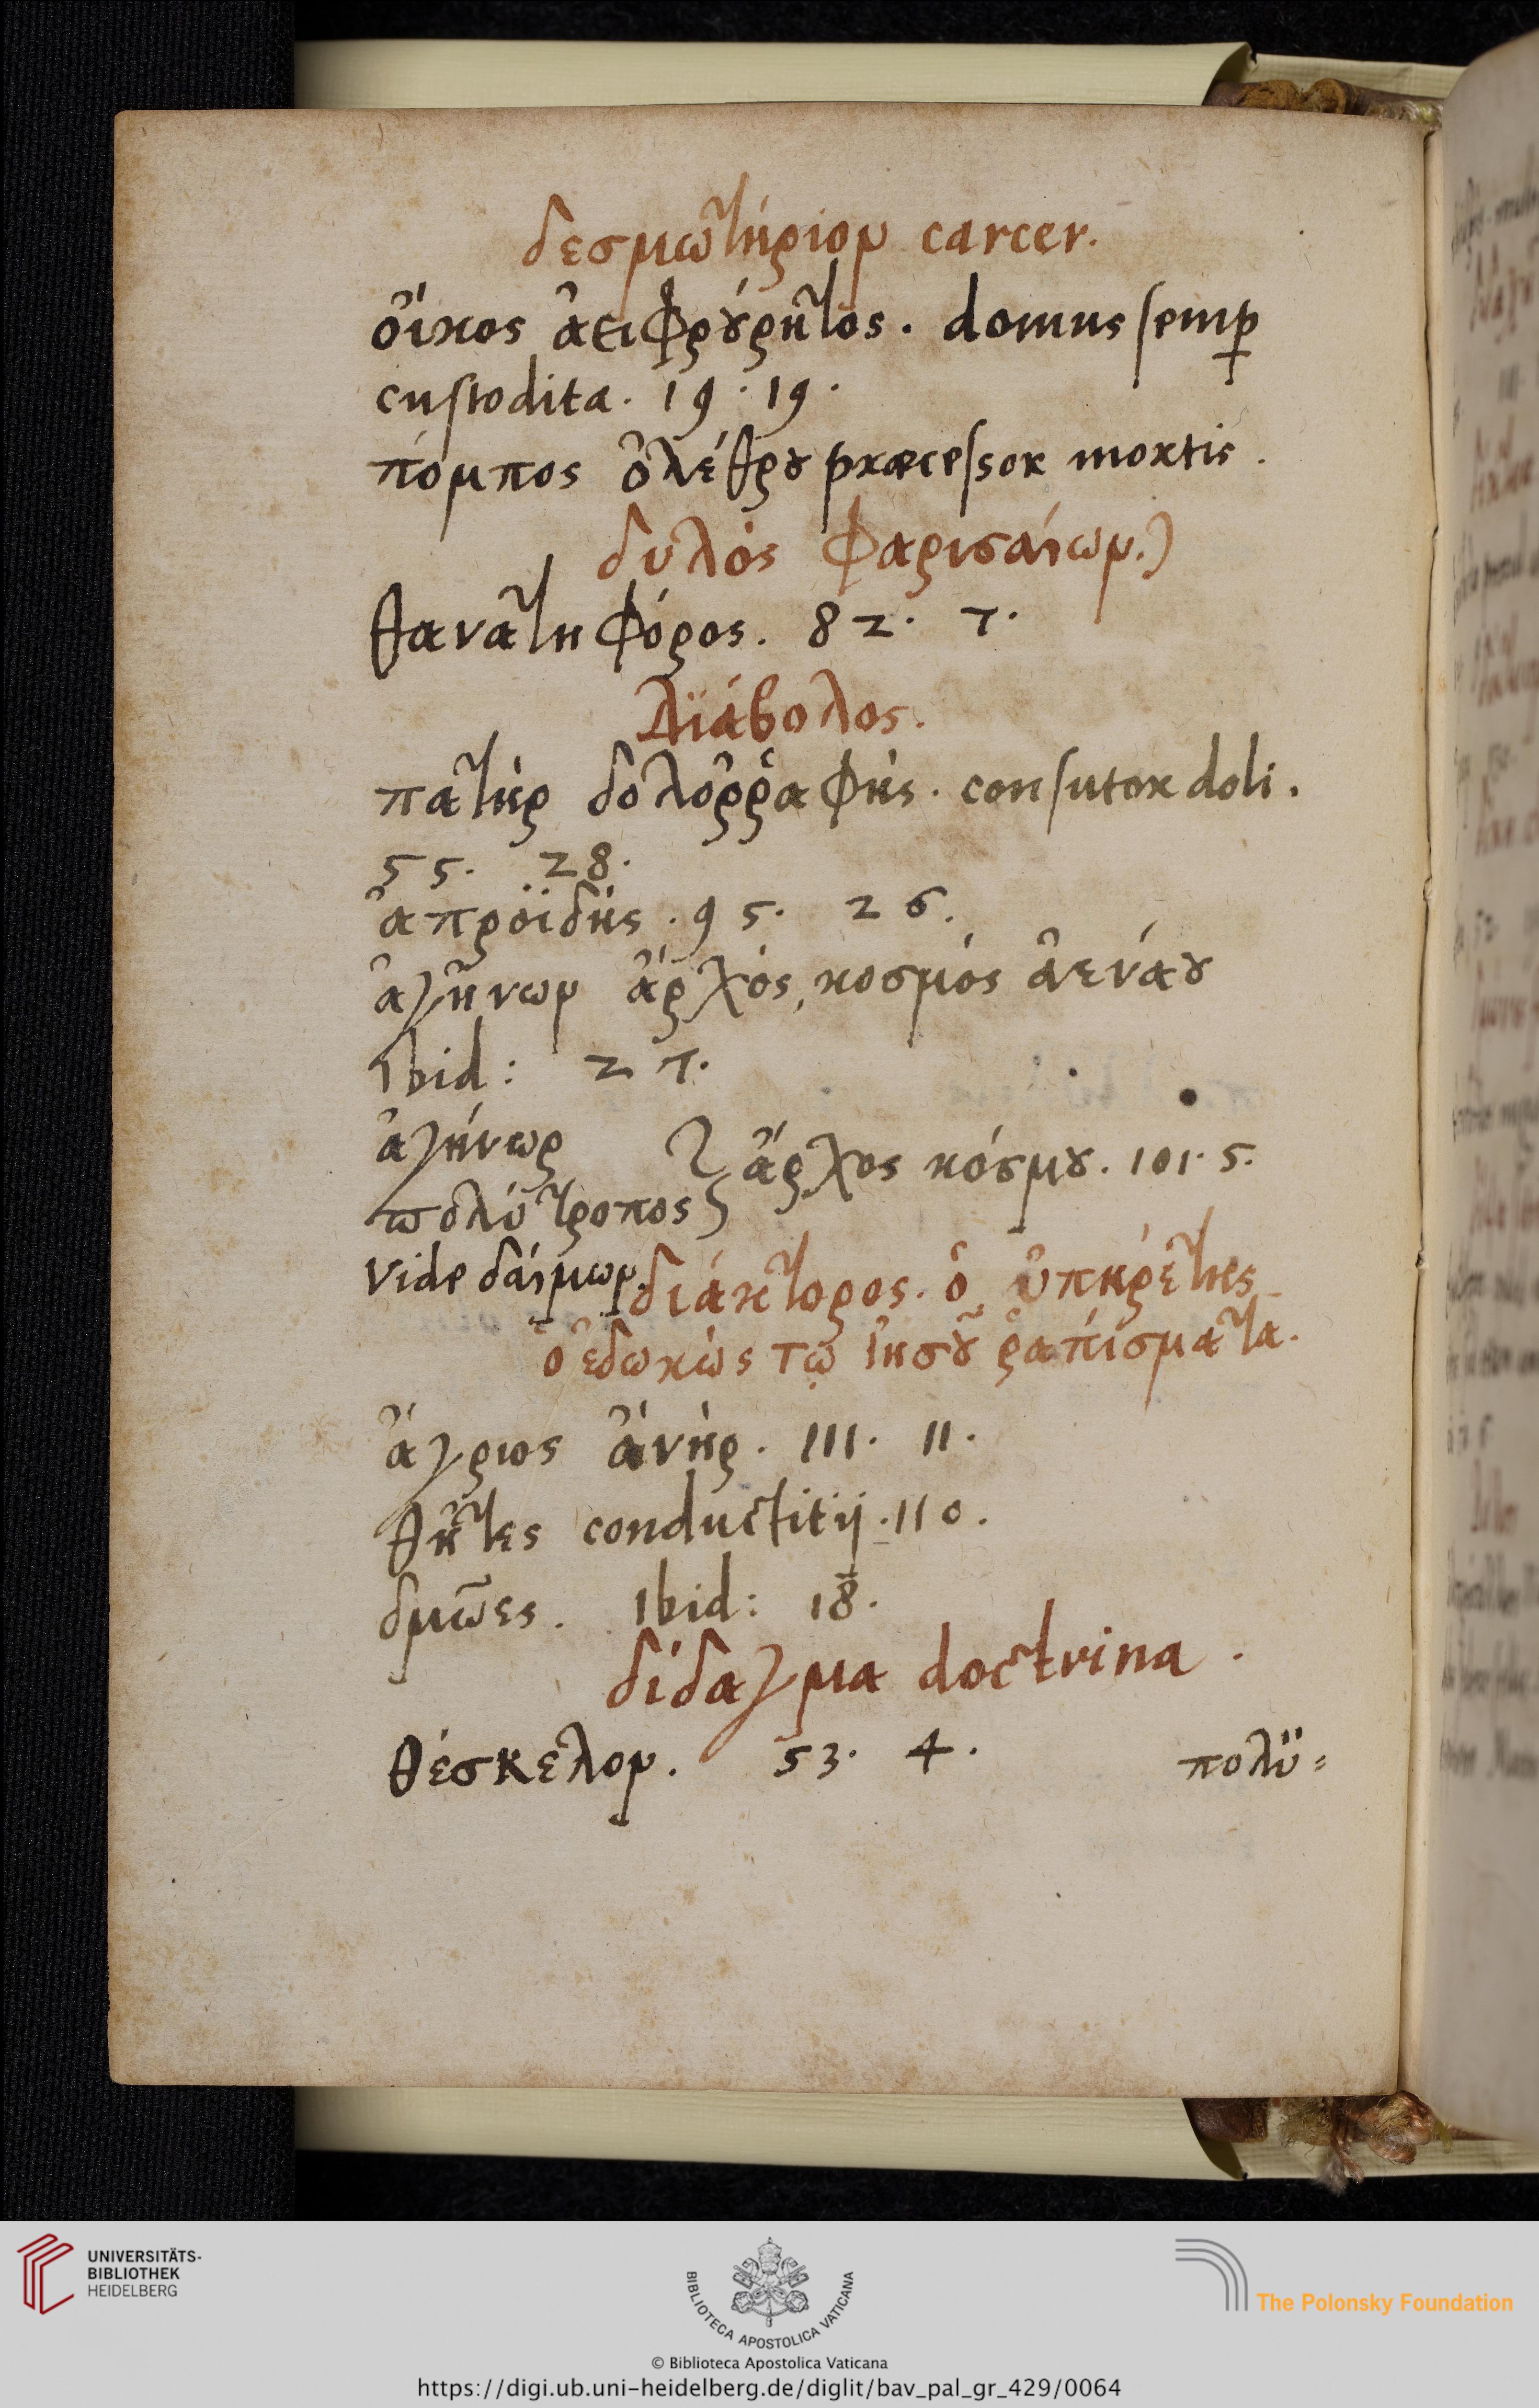 δεσμωτήριον carcer.
οἶκος ἀειφρούρητος. domus semp
custodita. 19. 19.
πόμπος ὀλέθρου præcessor mortis.
δυλὸς Φαρισαίων.)
θανατηφόρος. 82. 7.
Διάβολος.
πατὴρ δολοῤῥαφής. consutor doli.
55. 28.
ἀπροϊδής. 95. 26.
ἀγήνωρ ἀρχὸς, κοσμός ἀενάου
Ibid: 27.
ἀγήνωρ
πολύτροπος ἄρχος κόσμου. 101. 5.
Vide δαίμων.
διάκτορος. ὁ ὑπηρέτης
ὁ εδωκὼς τῷ ἰησοῦ ῥαπίσματα.
ἄγριος ἀνὴρ. 111. 11.
θῆτες conductitij. 110.
δμῶες. Ibid: 18.
δίδαγμα doctrina.
θέσκελον. 53. 4.
πολὺ=
UNIVERSITÄTS-
BIBLIOTHEK
HEIDELBERG
BIBLIOTECA APOSTOLICA VATICANA
© Biblioteca Apostolica Vaticana
The Polonsky Foundation
https://digi.ub.uni-heidelberg.de/diglit/bav_pal_gr_429/0064